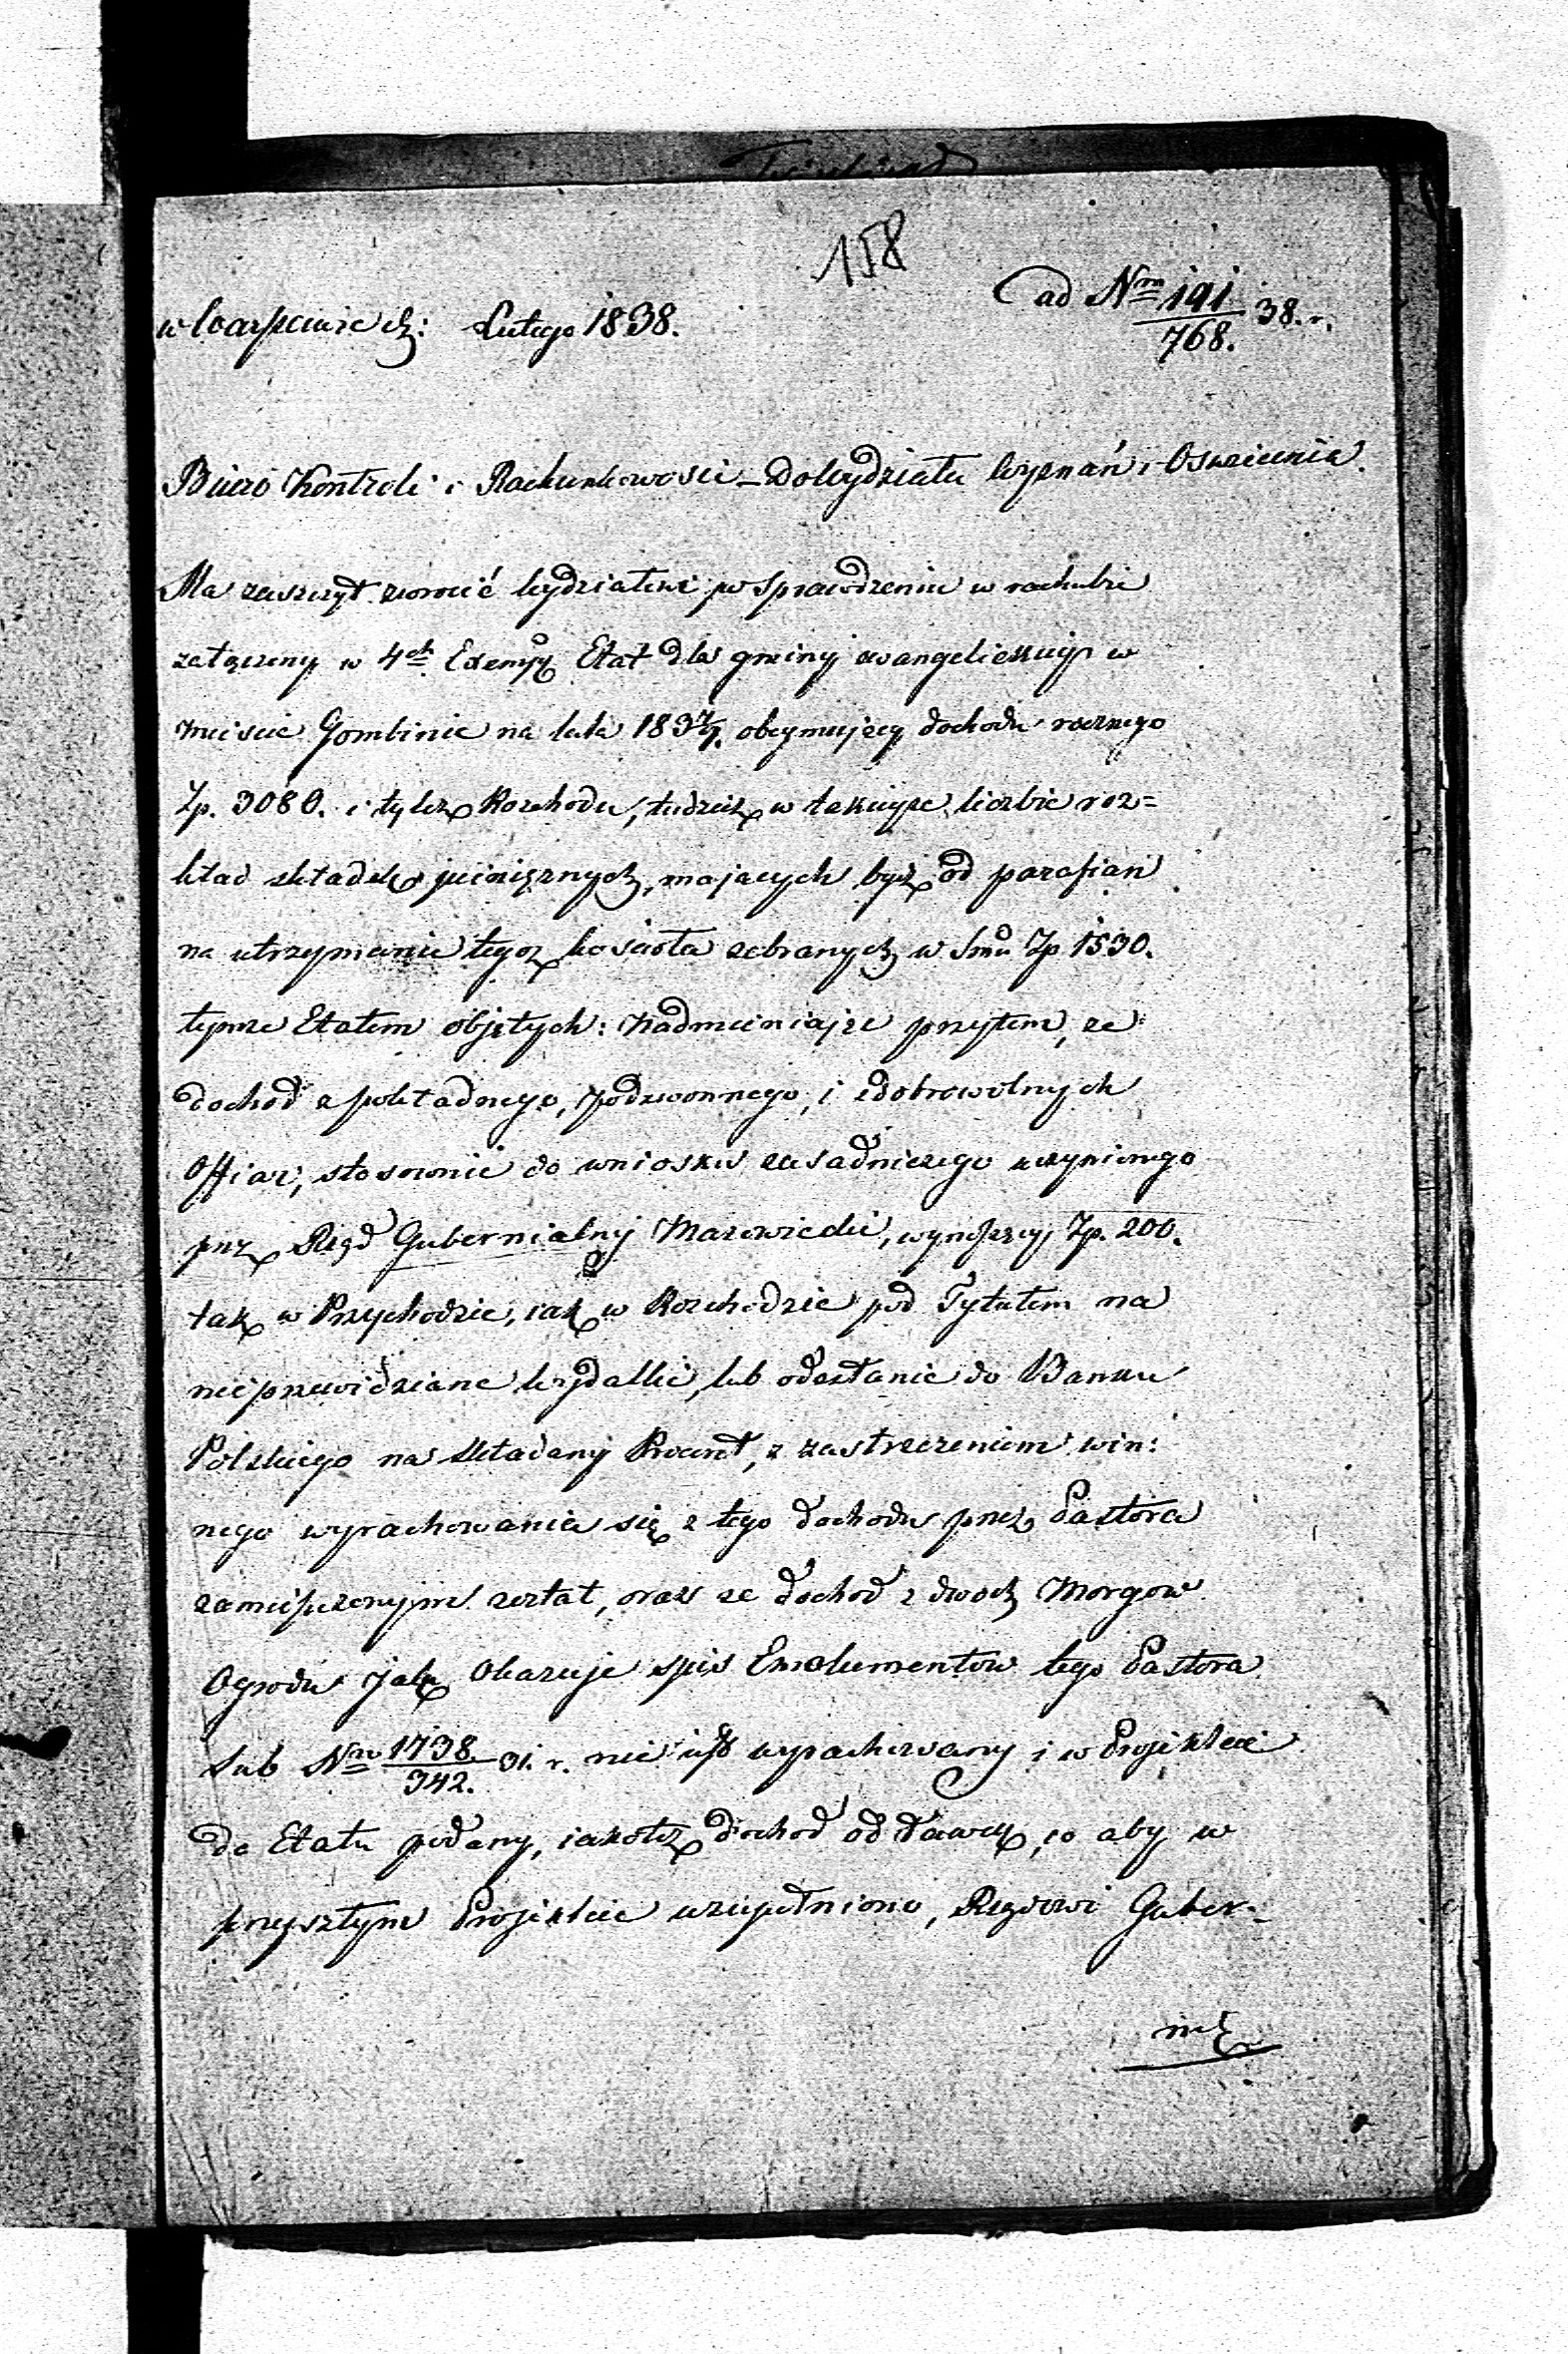 158
ad Nrm 191/768. 38. r.
w Warszawie d: Lutego 1838.
Biuro Kontroli i Rachunkowosci – Do Wydziału Wyznań i Oswiecenia.
Ma zaszczyt zwrocić Wydziałowi po sprawdzeniu w rachubie
załączony w 4ch Exempl Etat dla gminy ewangelickiey w
miescie Gombinie na lata 183 obeymujący dochodu rocznego
Zp. 3080. i tyleż Rozchodu, tudzież w takieyże liczbie roz=
kład składek pieniężnych, mających być od parafian
na utrzymanie tegoż koscioła zebranych w Smie Zp 1530.
tymże Etatem objętych: Nadmieniając przytem, że
dochod z pokładnego, podzwonnego, i z dobrowolnych
Offiar, stosownie do wniosku zasadniczego uczynionego
prez Rząd Gubernialny Mazowiecki, wynoszący Zp. 200.
tak w Przychodzie, iak w Rozchodzie pod Tytułem na
nieprzewidziane Wydatki, lub odesłanie do Banku
Polskiego na składany Procent, z zastrzeżeniem win:
nego wyrachowania się z tego dochodu prez Pastora
zamieszczonym został, oraz że dochod z dwoch Morgow
Ogrodu jak Okazuje spis Emolumentow tego Pastora
sub Nro 1738/342. 31. r. nie iest wyrachowany i w Projekcie
do Etatu podany, iakoteż dochod od Ławek, co aby w
przyszłym Projekcie uzupełniono, Rządowi Guber=